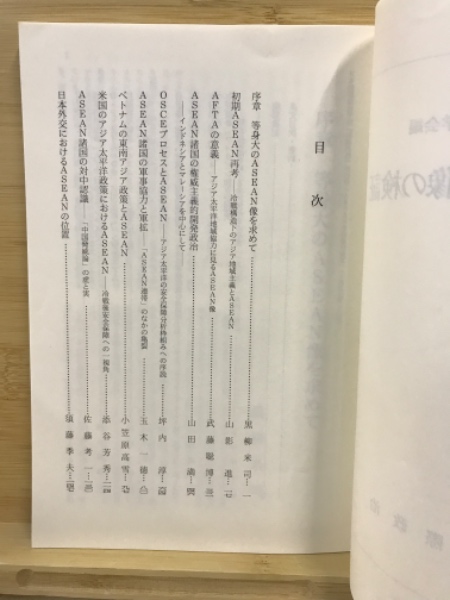 目次
序章 等身大のASEAN像を求めて……黒柳米司…一
初期ASEAN再考――冷戦構造下のアジア地域主義とASEAN……山影進…
AFTAの意義――アジア太平洋地域協力に見るASEAN像……武藤聡博…
ASEAN諸国の権威主義的開発政治
――インドネシアとマレーシアを中心にして……山田満…
OSCEプロセスとASEAN――アジア太平洋の安全保障分析枠組みへの序説……坪内淳…
ASEAN諸国の軍事協力と軍拡――「ASEAN連帯」のなかの亀裂……玉木一徳…
ベトナムの東南アジア政策とASEAN……小笠原高雪…
米国のアジア太平洋政策におけるASEAN――冷戦後安全保障への一視角……添谷芳秀…
ASEAN諸国の対中認識――「中国脅威論」の虚と実……佐藤考一…
日本外交におけるASEANの位置……須藤季夫…
像の検証